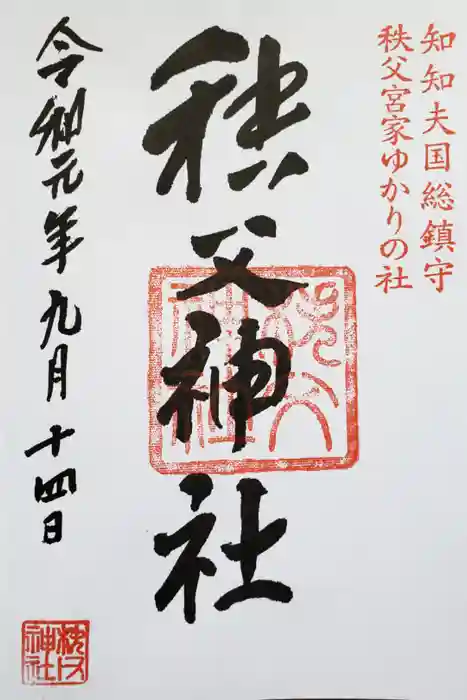 知知夫国総鎮守
秩父宮家ゆかりの社
秩父神社
令和元年九月十四日
秩父神社
秩父神社